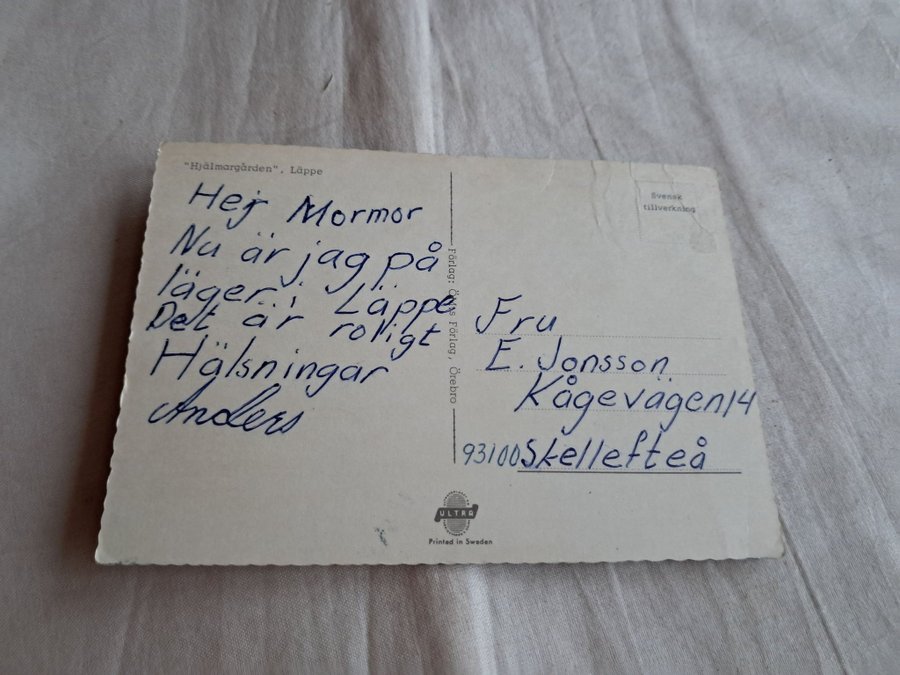 "Hjälmargården", Läppe
Hej Mormor
Nu är jag på
läger i Läppe
Det är roligt
Hälsningar
Anders
Förlag: Förlag, Örebro
Svensk
tillverkning
Fru
E. Jonsson
Kågevägen 14
93100 Skellefteå
ULTRA
Printed in Sweden